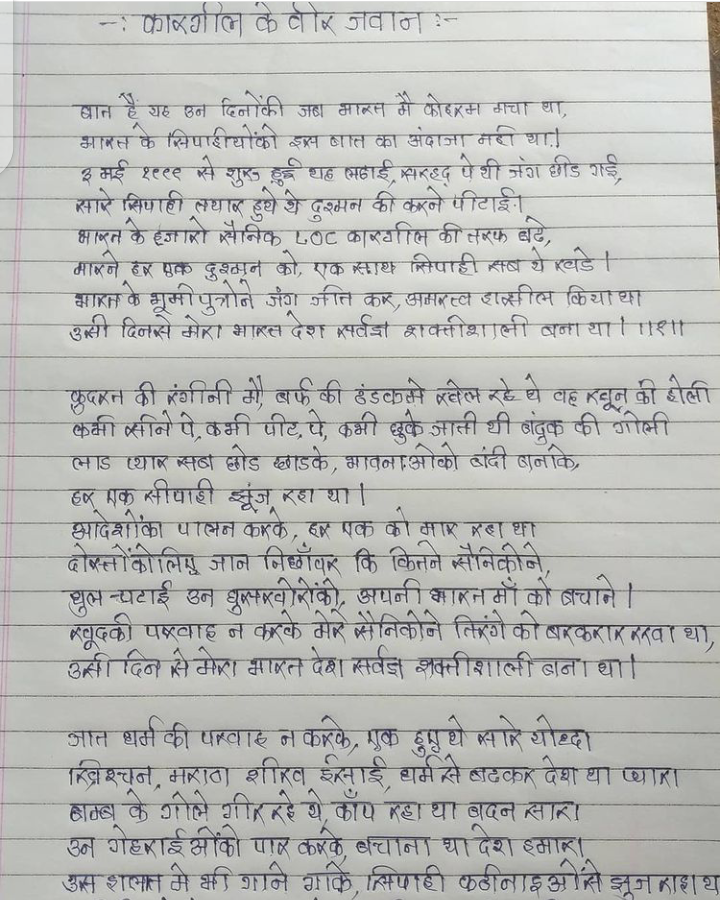 -: कारगील के वीर जवान :-
बात हैं यह उन दिनोंकी जब भारत मै कोहराम मचा था,
भारत के सिपाहीयोंको इस बात का अंदाजा नही था।
३ मई १९९९ से शुरू हुई यह लढाई, सरहद पे थी जंग छीड गई,
सारे सिपाही तयार हुये थे दुश्मन की करने पीटाई।
भारत के हजारो सैनिक LOC कारगील की तरफ बढे,
मारने हर एक दुश्मन को, एक साथ सिपाही सब थे खडे।
भारत के भूमीपुत्रोने जंग जीत कर, अमरत्व हासील किया था
उसी दिनसे मेरा भारत देश सर्वज्ञ शक्तीशाली बना था। ॥१॥
कुदरत की रंगीनी मै, बर्फ की ठंडकमे खेल रहे थे वह खून की होली
कभी सीने पे, कभी पीट पे, कभी छुके जाती थी बंदुक की गोली
लाड प्यार सब छोड छाडके, भावनाओको बंदी बनाके,
हर एक सीपाही झूंज रहा था।
आदेशोंका पालन करके, हर एक को मार रहा था
दोस्तोंकोलिए जान निछाँवर कि कितने सैनिकोने,
धुल चटाई उन घुसखोरोंको, अपनी भारत माँ को बचाने।
खूदकी परवाह न करके मेरे सैनिकोने तिरंगे को बरकरार रखा था,
उसी दिन से मेरा भारत देश सर्वज्ञ शक्तीशाली बना था।
जात धर्म की परवाह न करके, एक हुए थे सारे योध्दा
ख्रिश्चन, मराठा शीख ईसाई, धर्म से बढकर देश था प्यारा
बम्ब के गोले गीर रहे थे, काँप रहा था बदन सारा
उन गेहराईओंको पार करके, बचाना था देश हमारा
उस हालत मे भी गाने गाके, सिपाही कठीनाइओंसे झूज राहा थ